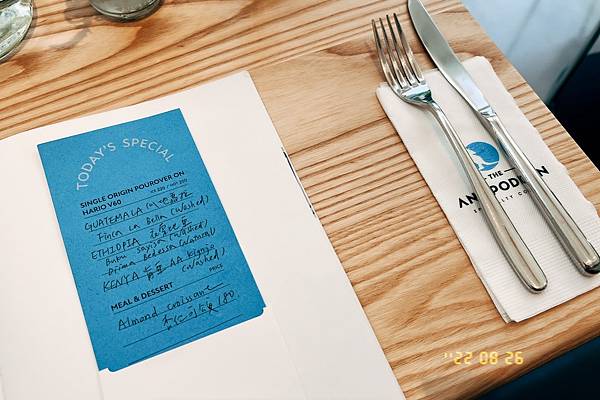 TODAY'S SPECIAL
SINGLE ORIGIN POUROVER ON
HARIO V60
ICE 220 / HOT 200
GUATEMALA
Finca La Bella (Washed)
ETHIOPIA
Buku Sayisa (Washed)
Bedessa (Natural)
KENYA AA Kignjo
(Washed)
PRICE
MEAL & DESSERT
Almond croissant
杏仁可頌 180
THE
AN PODE N
SPE LTY CO
'22 08 26